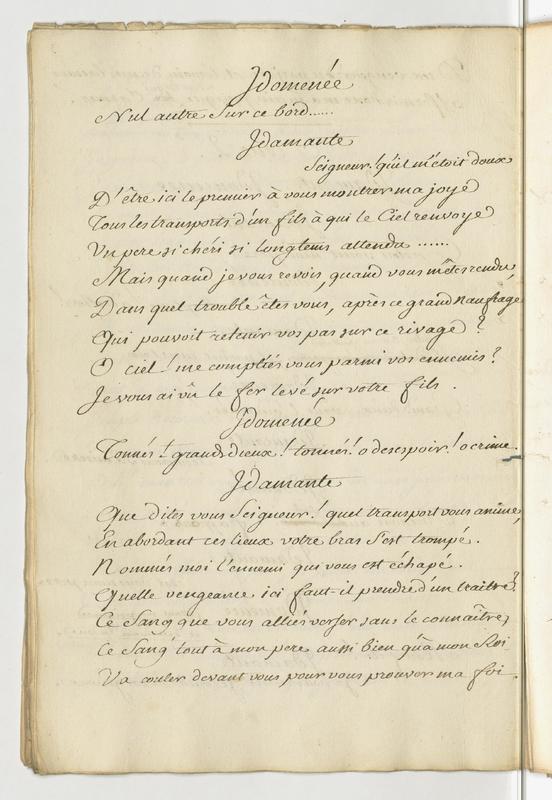 Idomenée
Nul autre Sur ce bord......
Idamante
Seigneur! qu'il m'étoit doux
D'être ici le premier à vous montrer ma joye
Tous les transports d'un fils à qui le Ciel renvoye
Un pere si chéri si longtems attendu ......
Mais quand je vous revois, quand vous m'êtes rendu,
Dans quel trouble êtes vous, après ce grand naufrage
Qui pouvoit retenir vos pas sur ce rivage ?
O ciel ! me comptiés vous parmi vos ennemis ?
Je vous ai vû le fer levé sur votre fils .
Idomenée
Tonnés ! grands dieux ! tonnés ! o desespoir ! o crime.
Idamante
Que dites vous Seigneur ! quel transport vous anime,
En abordant ces lieux votre bras s'est trompé .
Nommés moi l'ennemi qui vous est échapé .
Quelle vengeance ici faut-il prendre d'un traitre ?
Ce Sang que vous alliés verser sans le connaître,
Ce Sang tout à mon pere aussi bien qu'à mon Roi
Va couler devant vous pour vous prouver ma foi .